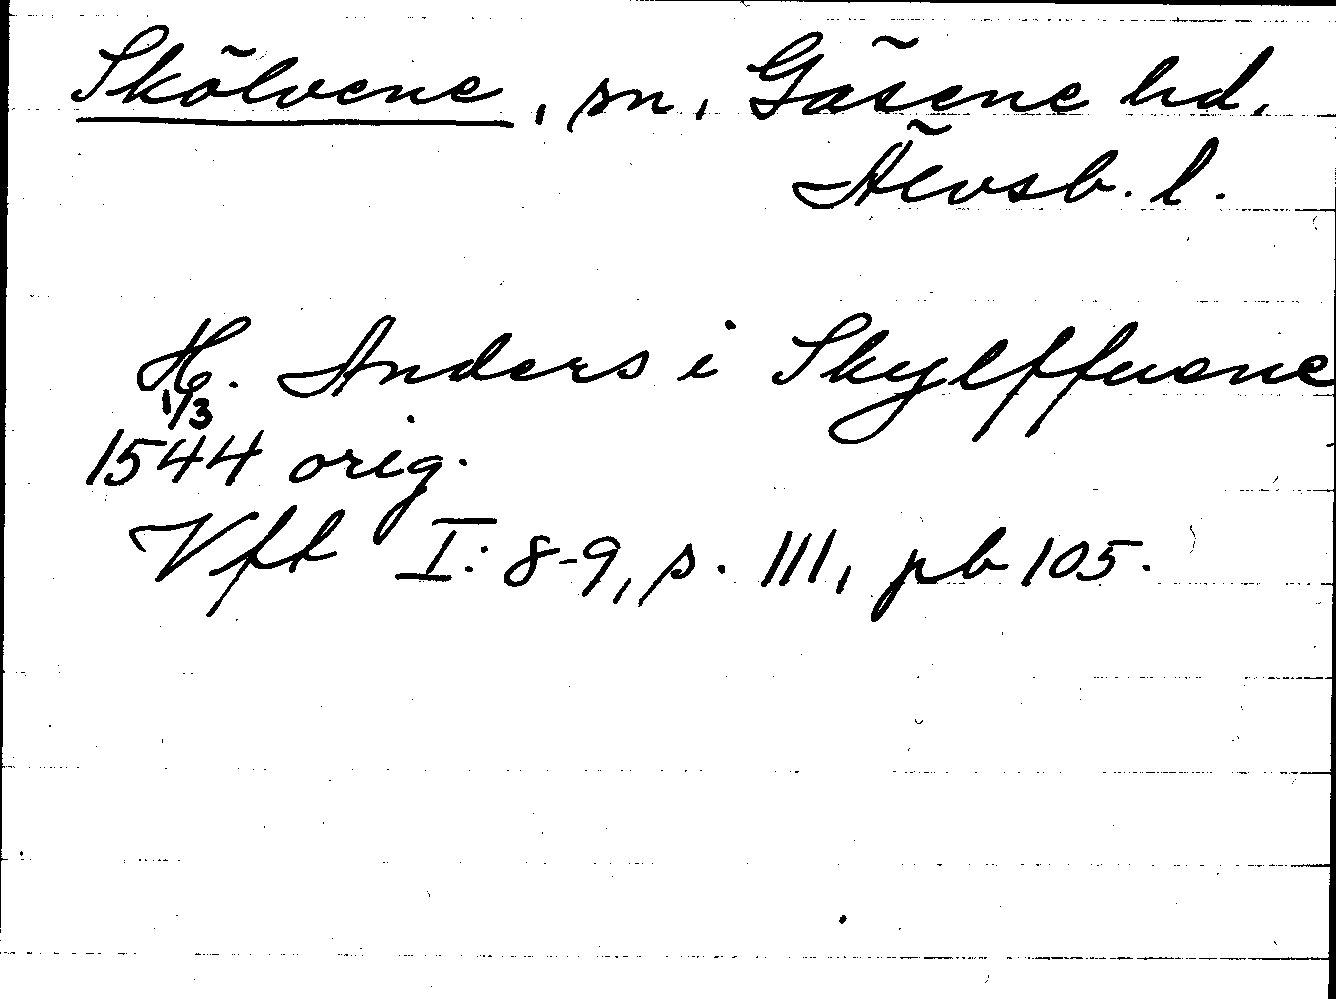 Skölvene, sn, Gäsene hd.
Älvsb. l.
H. Anders i Skylffuene
1/3
1544 orig.
Vft I: 8-9, s. 111, pb 105.